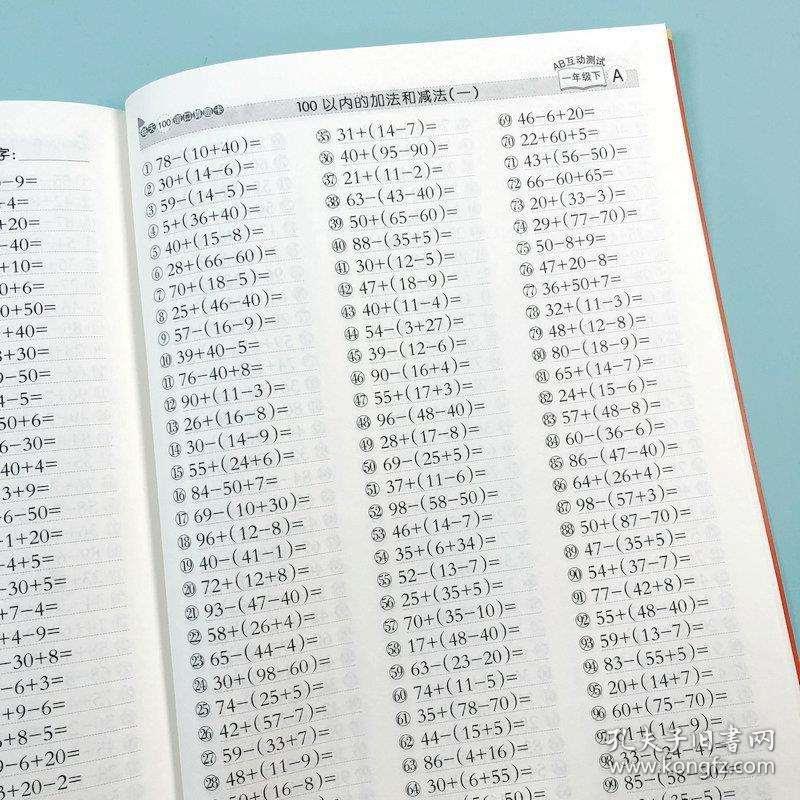 字:
-9=
+4=
+20=
-40=
+10=
0+6=
0+50=
+40=
8+30=
9-50=
4-5=
50+6=
6-30=
40+4=
3+9=
+6-50=
-1+20=
-4+5=
-30+5=
+7-4=
+4-9=
-30+8=
-6+3=
+9-6=
+8-5=
9-6+20=
+20-2=
AB互动测试
一年级下 A
100以内的加法和减法(一)
①78-(10+40)=
②30+(14-6)=
③59-(14-5)=
④5+(36+40)=
⑤40+(15-8)=
⑥28+(66-60)=
⑦70+(18-5)=
⑧25+(46-40)=
⑨57-(16-9)=
⑩39+40-5=
⑪76-40+8=
⑫90+(11-3)=
⑬26+(16-8)=
⑭30-(14-9)=
⑮55+(24+6)=
⑯84-50+7=
⑰69-(10+30)=
⑱96+(12-8)=
⑲40-(41-1)=
⑳72+(12+8)=
㉑93-(47-40)=
㉒58+(26+4)=
㉓65-(44-4)=
㉔30+(98-60)=
㉕74-(25+5)=
㉖42+(57-7)=
㉗59-(33+7)=
㉘48+(11-9)=
50+(16-8)=
㉟31+(14-7)=
㊱40+(95-90)=
㊲21+(11-2)=
㊳63-(43-40)=
㊴50+(65-60)=
㊵88-(35+5)=
㊶30+(12-5)=
㊷47+(18-9)=
㊸40+(11-4)=
㊹54-(3+27)=
㊺39-(12-6)=
㊻90-(16+4)=
㊼55+(17+3)=
㊽96-(48-40)=
㊾28+(17-8)=
㊿69-(25+5)=
51 37+(11-6)=
52 98-(58-50)=
53 46+(14-7)=
54 35+(6+34)=
55 52-(13-7)=
56 25+(35+5)=
57 70+(35-10)=
58 17+(48-40)=
59 63-(23-20)=
60 74+(11-5)=
61 35+(78-70)=
62 44-(15+5)=
63 86-(4+16)=
64 30+(6+55)=
69 46-6+20=
70 22+60+5=
71 43+(56-50)=
72 66-60+65=
73 20+(33-3)=
74 29+(77-70)=
75 50-8+9=
76 47+20-8=
77 36+50+7=
78 32+(11-3)=
79 48+(12-8)=
80 80-(18-9)=
81 65+(14-7)=
82 24+(15-6)=
83 57+(48-8)=
84 60-(36-6)=
85 86-(47-40)=
86 64+(26+4)=
87 98-(57+3)=
88 50+(87-70)=
89 47-(35+5)=
90 54+(37-7)=
91 77-(42+8)=
92 55+(48-40)=
93 59+(13-7)=
94 83-(55+5)=
95 20+(14+7)=
96 60+(75-70)=
97 71+(14-9)=
98 33-(24-4)=
99 85-(58-50)=
孔夫子旧书网
www.kongfz.com